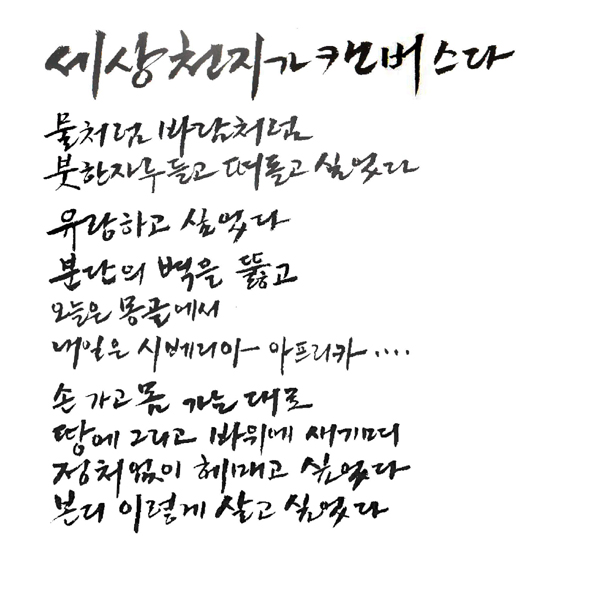 세상천지가 캔버스다
물처럼 바람처럼
붓한자루 들고 떠돌고 싶었다
유랑하고 싶었다
분단의 벽을 뚫고
오늘은 몽골에서
내일은 시베리아 아프리카 ....
손 가고 몸 가는 대로
땅에 그리고 바위에 새기며
정처없이 헤매고 싶었다
본디 이렇게 살고 싶었다